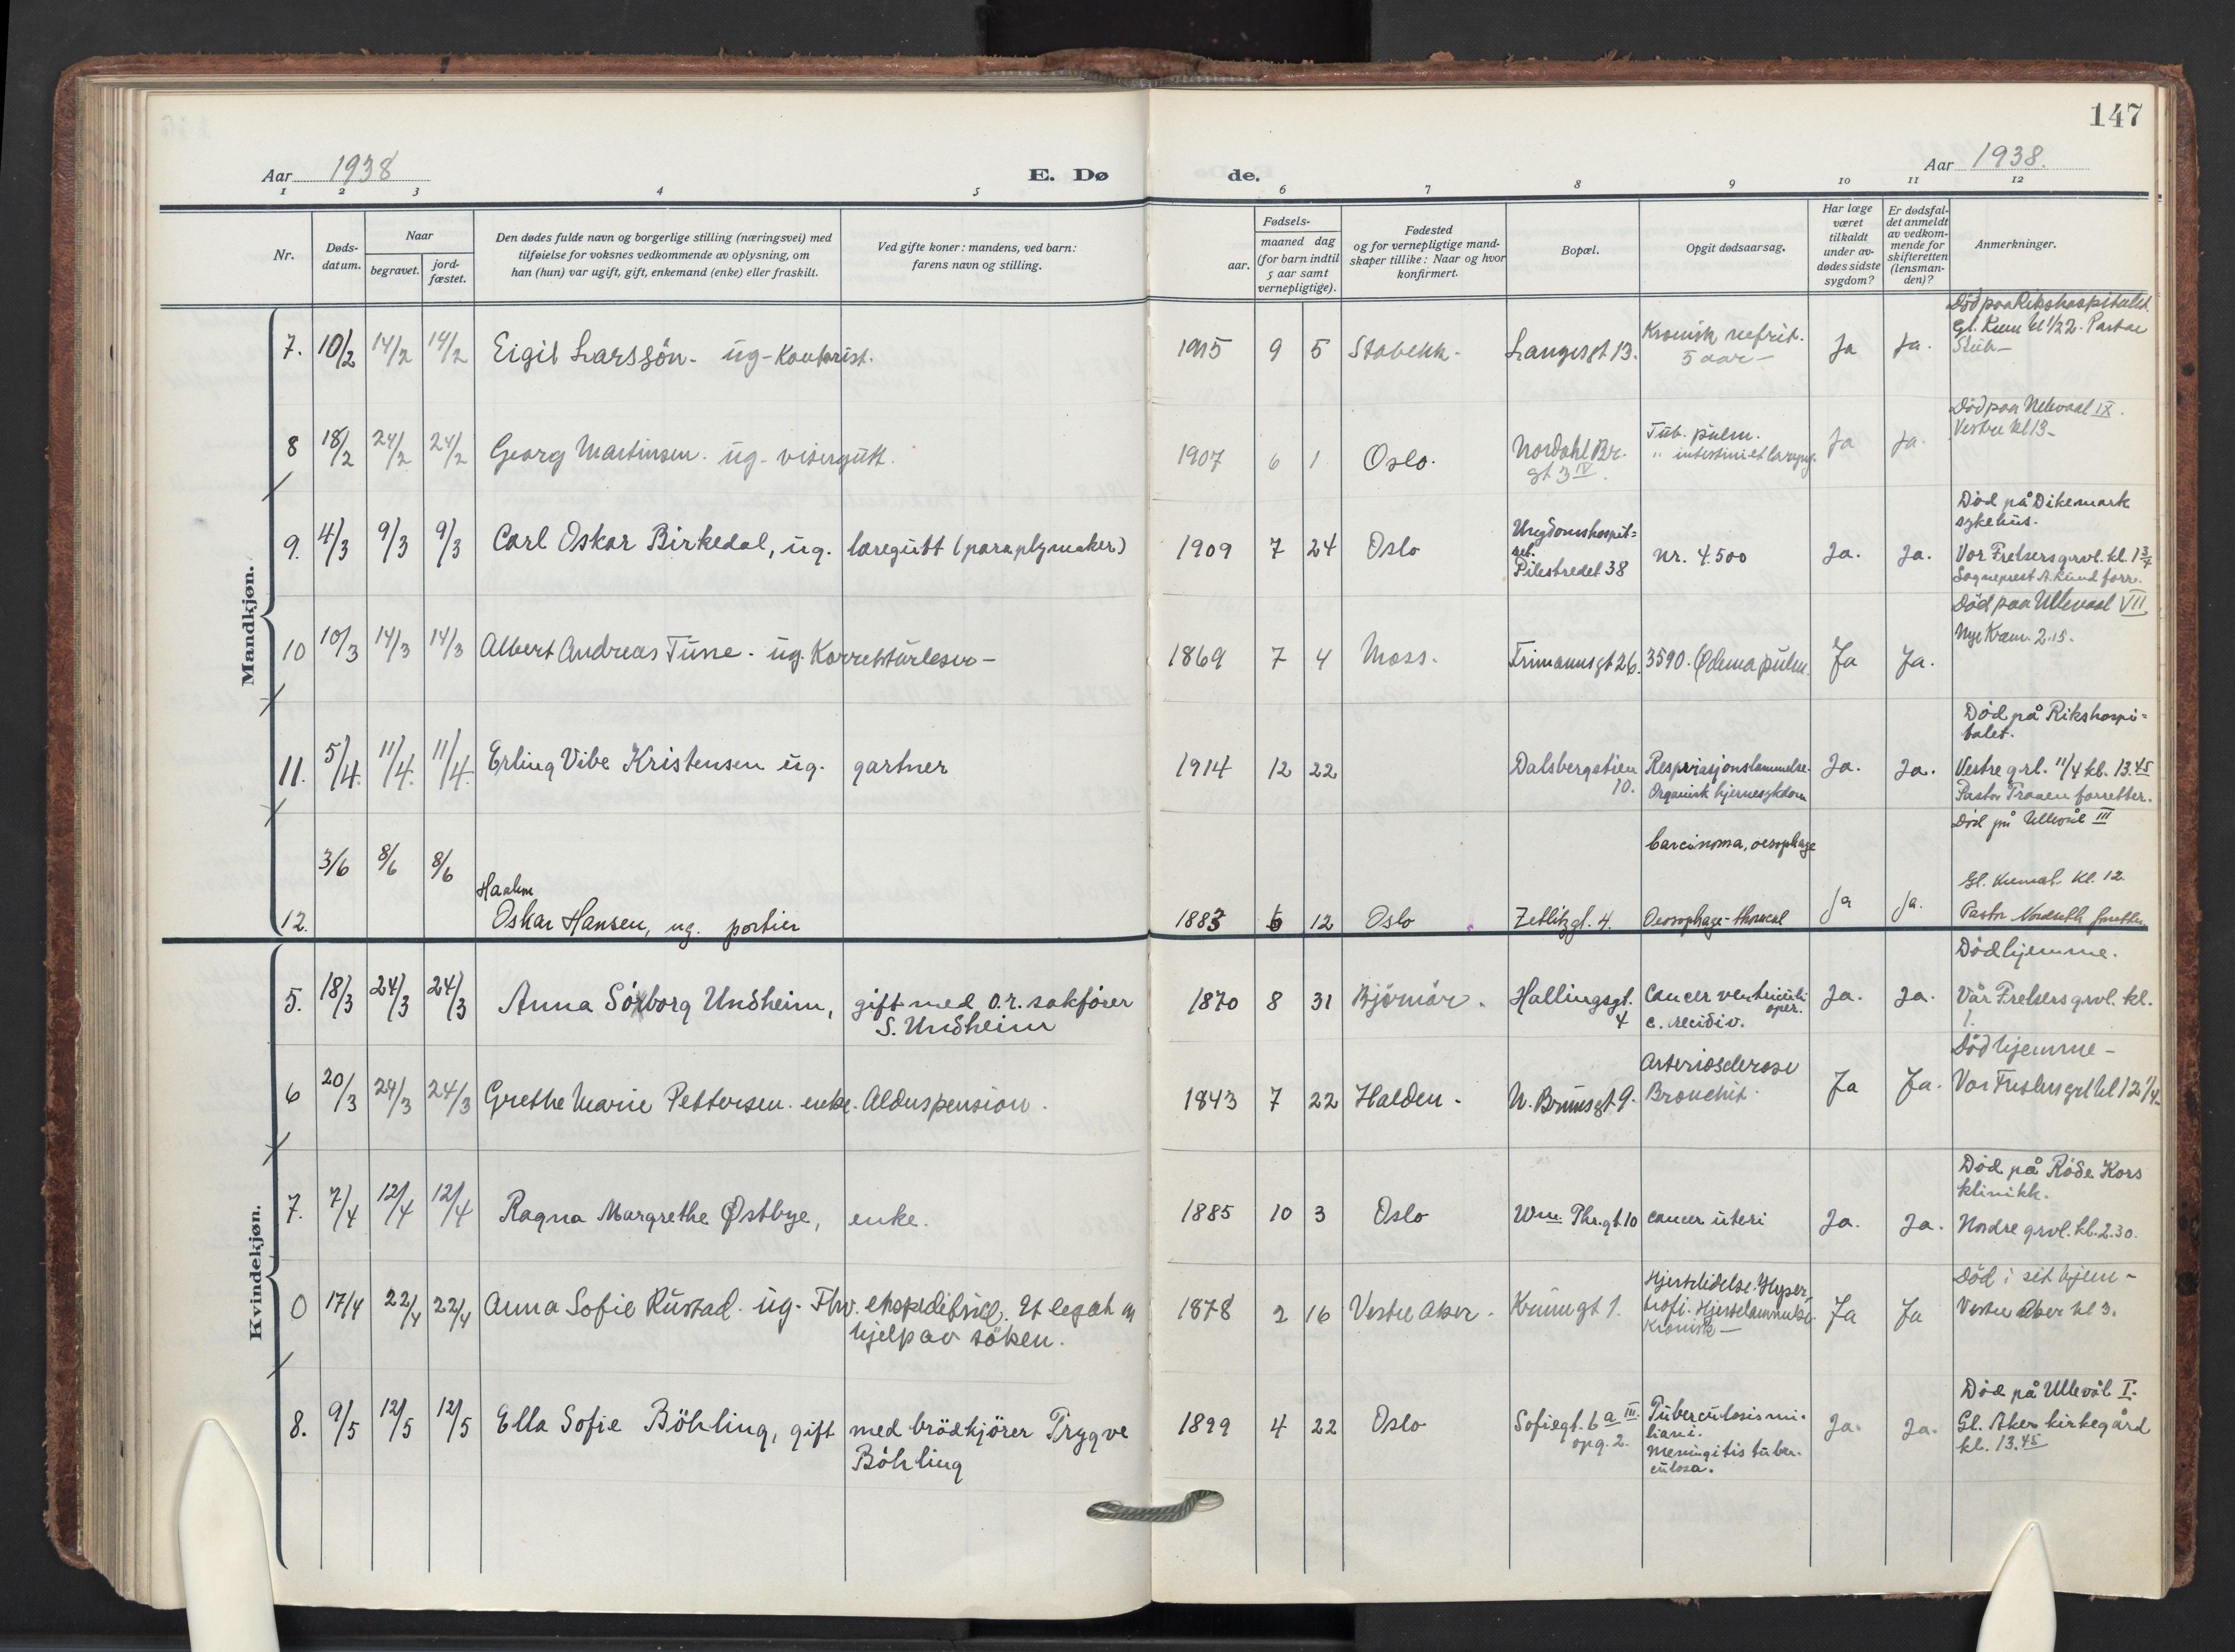 147
Aar 1938 E. Døde. Aar 1938.
1 2 3 4 5 6 7 8 9 10 11 12
Nr.
Døds-
datum.
Naar
begravet.
jord-
fæstet.
Den dødes fulde navn og borgerlige stilling (næringsvei) med
tilføielse for voksnes vedkommende av oplysning, om
han (hun) var ugift, gift, enkemand (enke) eller fraskilt.
Ved gifte koner: mandens, ved barn:
farens navn og stilling.
Fødsels-
aar.
maaned dag
(for barn indtil
5 aar samt
vernepligtige).
Fødested
og for vernepligtige mand-
skaper tillike: Naar og hvor
konfirmert.
Bopæl.
Opgit dødsaarsag.
Har læge
været
tilkaldt
under av-
dødes sidste
sygdom?
Er dødsfal-
det anmeldt
av vedkom-
mende for
skifteretten
(lensman-
den)?
Anmerkninger.
Mandkjøn.
Død paa Rikshospitalet.
7. 10/2 14/2 14/2 Eigil Larssøn - ug - Kontorist. 1915 9 5 Stabekk - Langesgt 13. Kronisk nefrit. Ja Ja.
5 aar -
Død paa Ullevaal IX.
8 18/2 24/2 24/2 Georg Martinsen. ug - visergutt. 1907 6 1 Oslo. Nordahl Br. Tub. pulm. Ja Ja. Vestre kl 13 -
gt 3 IV.
Død på Dikemark
sykehus.
9. 4/3 9/3 9/3 Carl Oskar Birkedal, ug. læregutt (paraplymaker) 1909 7 24 Oslo Ungdomshospit=
set.
Pilestredet 38 nr. 4.500 Ja. Ja. Vor Frelsers grvl. kl. 1 3/4
Sogneprest A. Lund forr.
Død paa Ullevaal VII
10 10/3 14/3 14/3 Albert Andreas Tune - ug. Korrekturleser - 1869 7 4 Moss. Frimannsgt 26. 3590. Ødema pulm. Ja Ja. Nye Krem. 2.15.
Død på Rikshospi=
talet.
11. 5/4. 11/4. 11/4. Erling Vibe Kristensen ug. gartner 1914 12 22 Dalsbergstien
10. Respirasjonslammelse.
Organisk hjernesykdom Ja. Ja. Vestre grl. 11/4 kl. 13.45
Pastor Traaen forretter.
Død på Ullevål III
3/6 8/6 8/6 Carcinoma, oesophage
Gl. Kremat. kl. 12.
12. Oskar Hansen, ug. portier 1883 6 12 Oslo Zetlitzgt. 4. Oesophage - thoracal Ja Ja. Pastor Nordseth forretter.
Kvindekjøn.
Død hjemme.
5. 18/3 24/3 24/3 Anna Sörborg Undheim, gift med o.r. sakfører 1870 8 31 Hallingsgt.
4 Cancer ventriculi
oper.
c. recidiv. Ja. Ja. Vår Frelsers grvl. kl.
1.
S. Undheim
Død hjemme -
6 20/3 24/3 24/3 Grethe Marie Pettersen. enke. Alderspension. 1843 7 22 Halden - N. Brunsgt 9. Arteriosclerose
Bronchit. Ja Ja. Vor Frelsers grl kl 12 1/4 -
Død på Røde Kors
klinikk.
7. 7/4 12/4 12/4 Ragna Margrethe Østbye, enke. 1885 10 3 Oslo Wm. Thr.gt. 10 cancer uteri Ja. Ja. Nordre grvl. kl. 2.30.
Død i sit hjem -
0 17/4 22/4 22/4 Anna Sofie Rustad - ug - Fhv. ekspeditrice. Et legat og
hjelp av söken. 1878 2 16 Vestre Aker - Krumgt 1. Hjertelidelse. Hyper,
trofi. Hjertelammelse.
Kronisk - Ja Ja Vestre Aker kl 3.
Død på Ullevål I.
8. 9/5 12/5 12/5 Ella Sofie Böhling, gift med brödkjörer Trygve
Böhling 1899 4 22 Oslo Sofiegt. 6 a III.
opg. 2. Tuberculosis mi-
liari.
Meningitis tuber-
culosa. Ja. Ja. Gl. Aker kirkegård
kl. 13.45